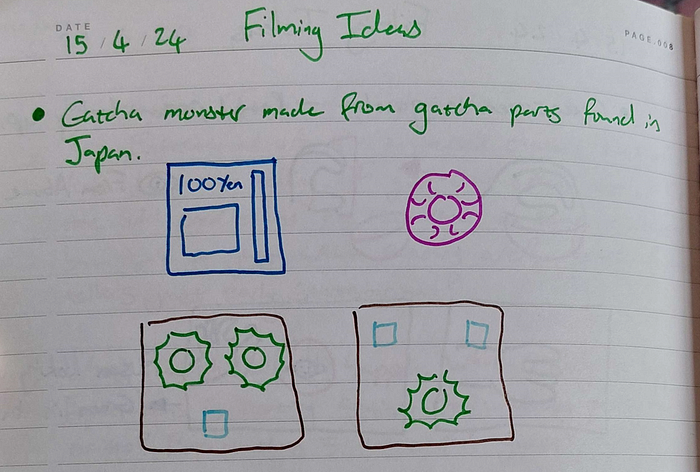 DATE
15 / 4 / 24 Filming Ideas
PAGE.008
• Gatcha monster made from gatcha parts found in
Japan.
100 Yen